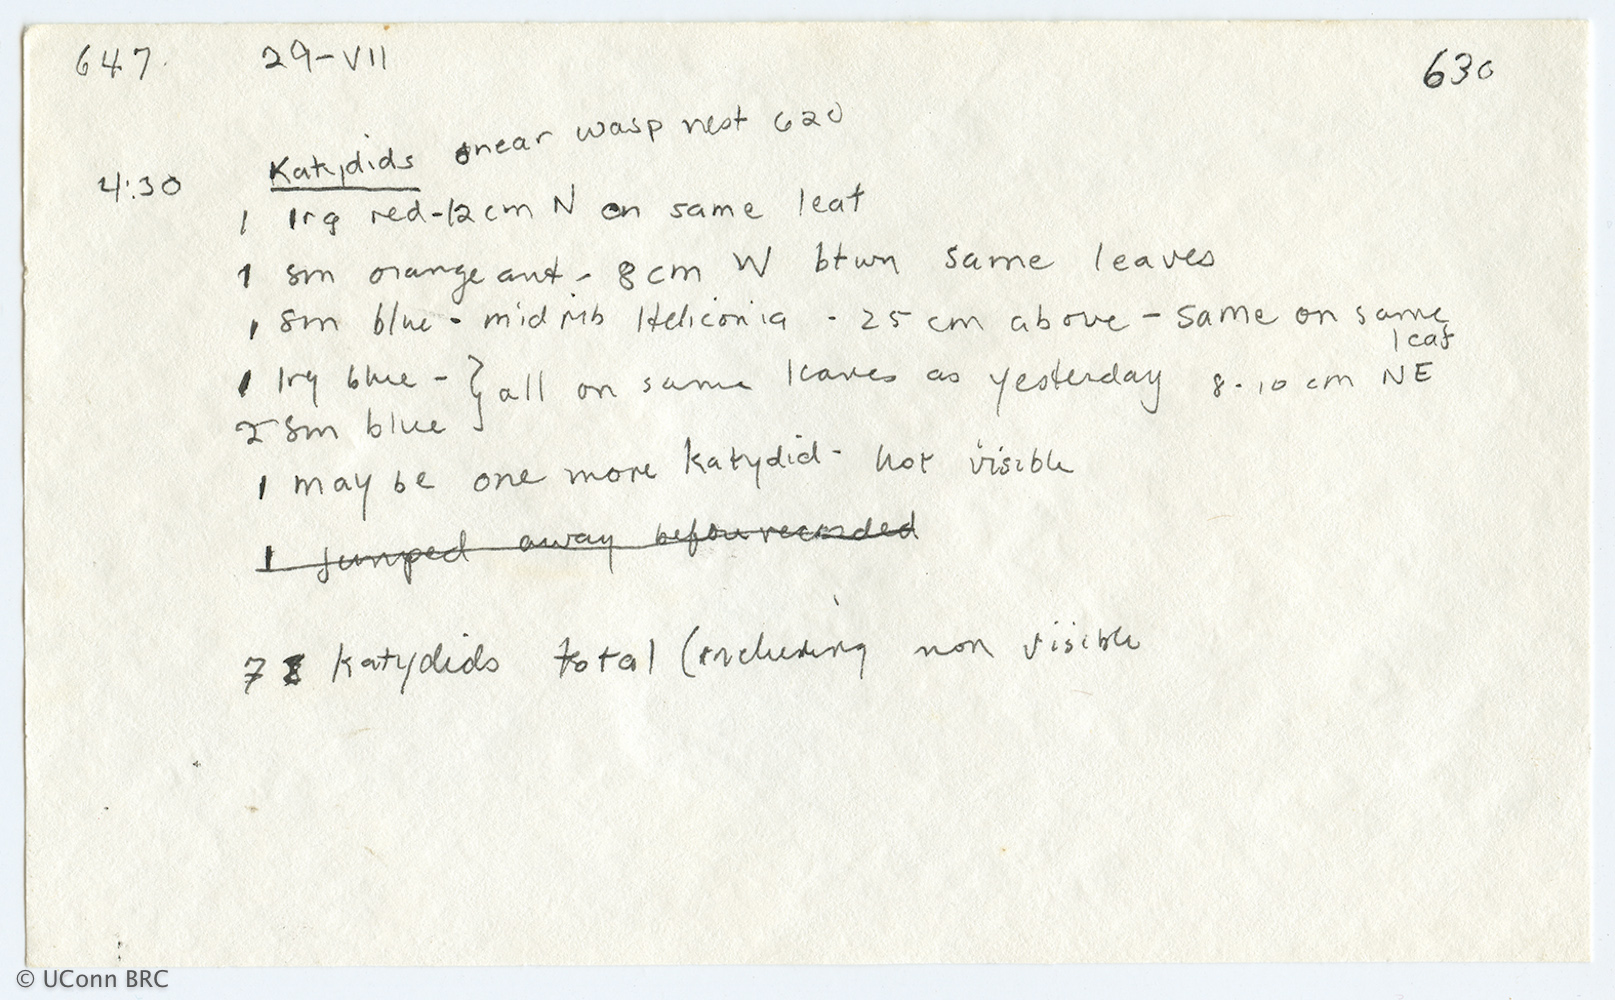 647. 29-VII 630
4:30 Katydids near wasp nest 620
1 lrg red-12cm N on same leaf
1 sm orange ant - 8cm W btwn same leaves
1 sm blue - midrib Heliconia - 25 cm above - same on same leaf
1 lrg blue - } all on same leaves as yesterday 8-10 cm NE
2 sm blue
1 may be one more katydid - not visible
1 jumped away before recorded
7 8 Katydids total (including non visible
© UConn BRC